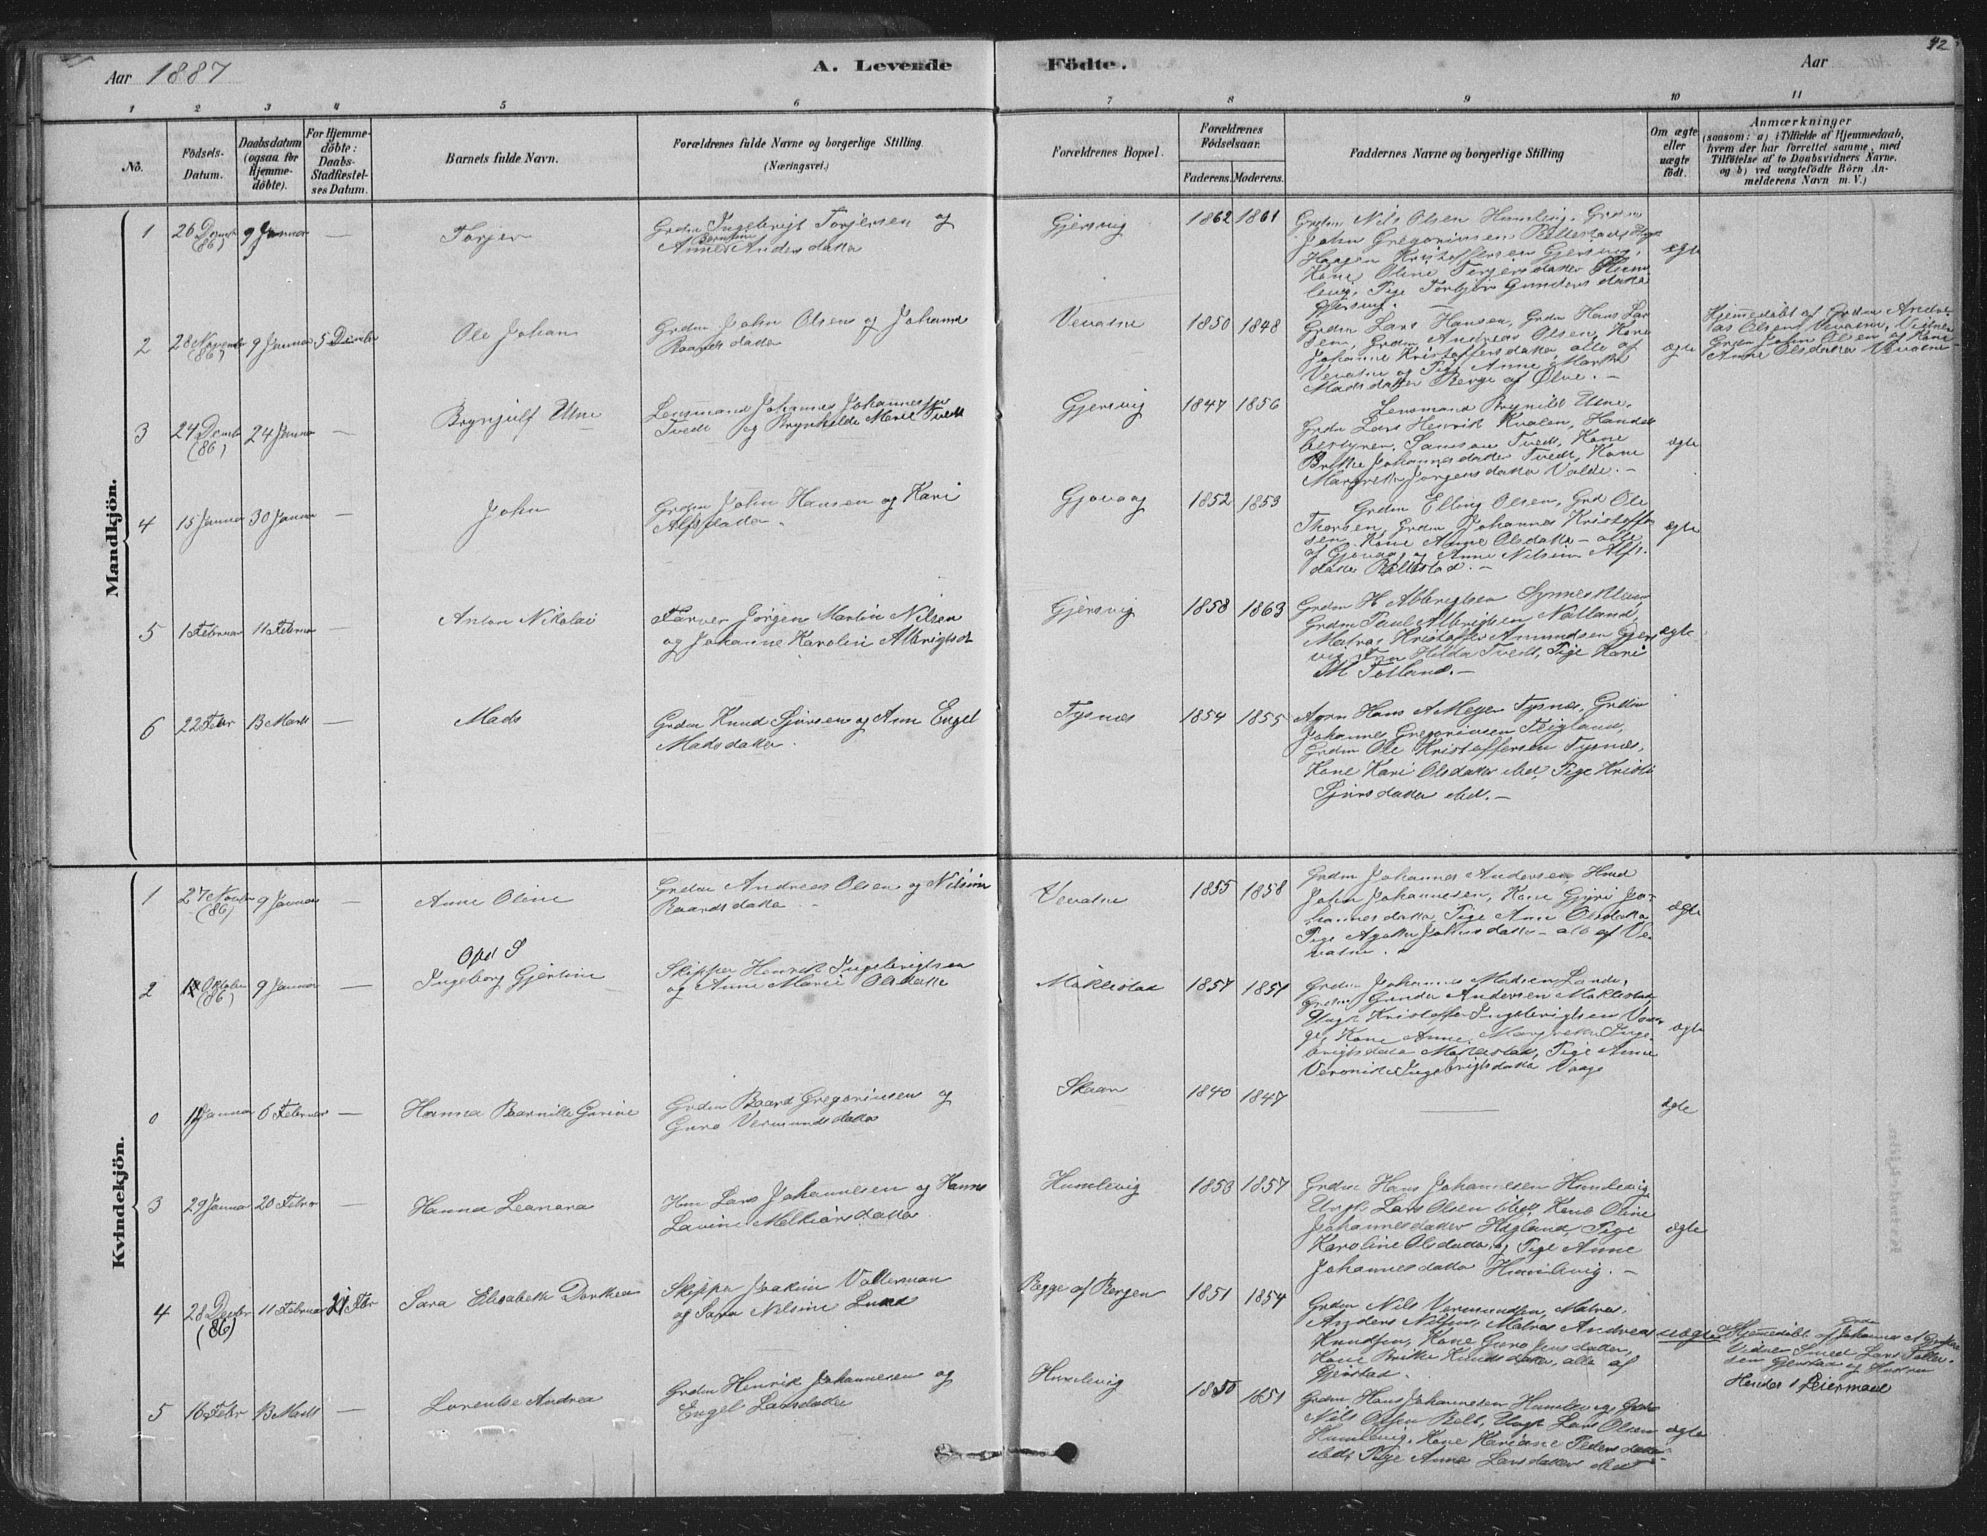 Aar 1887
A. Levende Födte.
Aar
42
1 2 3 4 5 6 7 8 9 10 11
No.
Födsels-Datum.
Daabsdatum (ogsaa for Hjemme-döbte).
For Hjemme-döbte: Daabs-Stadfæstel-ses Datum.
Barnets fulde Navn.
Forældrenes fulde Navne og borgerlige Stilling.
(Næringsvei.)
Forældrenes Bopæl.
Forældrenes Födselsaar.
Faderens. Moderens.
Faddernes Navne og borgerlige Stilling
Om ægte eller uægte födt.
Anmærkninger
(saasom: a) i Tilfælde af Hjemmedaab, hvem der har forrettet samme, med Tilföielse af to Daabsvidners Navne, og b) ved uægtefödte Börn An-melderens Navn m. V.)
Mandkjön.
1 26 Decmb (86) 9 Januar — Torjer
Grdm Ingebrigt Torjersen og
Anne Berntine Andersdatter
Gjersvig 1862 1861
Grdm Nils Olsen Humlevig, Grdm
John Gregoriussen Beltestad,
Haagen Kristoffersen Gjersvig,
Kone Oline Torjersdatter Hum
levig, Pige Torbjør Gundersdatter
Gjersvig.
ægte
2 28 Novemb (86) 9 Januar 5 December Ole Johan
Grdm John Olsen og Johanne
Baardsdatter
Vevatne 1850 1848
Grdm Lars Hansen, Grdm Hans Lar
sen, Grdm Andreas Olsen, Kone
Johanne Kristoffersdatter, alle af
Vevatne og Pige Anne Marthe
Madsdatter Berge af Ølve. —
ægte
Hjemmedøbt af Grdm Andre
as Olsen Vevatne, Vidner
Grdm John Olsen og Kone
Anne Olsdatter Vevatne —
3 24 Decmb (86) 24 Januar — Brynjulf Une
Lensmand Johannes Johannessen
Tvedt og Brynhilde Marie Tvedt
Gjersvig 1847 1856
Lensmand Brynild Une,
Grdm Lars Henrik Kvalen, Handels
bestyrer Samson Tvedt, Kone
Brithe Johannesdatter Tvedt, Kone
Margrethe Jørgensdatter Valde. —
ægte
4 15 Januar 30 Januar — John
Grdm John Hansen og Kari
Alfsdatter.
Gjøvaag 1852 1853
Grdm Elling Olsen, Grd Ole
Thorsen, Grdm Johannes Kristoffer
sen, Kone Anne Olsdatter — alle
af Gjøvaag og Anne Nilsine Alfs
datter Beltestad. —
ægte
5 1 Februar 11 Februar — Anton Nikolai
Farver Jørgen Martin Nilsen
og Johanne Karolin Albrigtsd
Gjersvig 1858 1863
Grdm H Albrigtsen
Grdm Paul Albrigtsen Nalland,
Matros Kristoffer Amundsen Gjers
vig, Hilda Tvedt, Pige Kari
M Følland. —
ægte
6 22 Febr 13 Marts — Mads
Grdm Knud Sjursen og Ane Engel
Madsdatter.
Tysnæs 1854 1855
Hans A Meyer Tysnæs, Grdm
Johannes Gregoriussen Teigland,
Grdm Ole Kristoffersen Tysnæs,
Kone Kari Olsdatter ibid, Pige Kristi
Sjursdatter ibid. —
Kvindekjön.
1 27 Novbr (86) 9 Januar — Anne Oline
Grdm Andreas Olsen og Nilsine
Baardsdatter
Vevatne 1855 1858
Grdm Johannes Andersen, Hmd
John Johannesen, Kone Gjøri Jo-
hannesdatter, Pige Anne Olsdatter
Pige Agathe — alle af Ve-
vatne.
ægte
2 Oktober (86) 9 Januar — Ingeborg Gjertine
Skipper Henrik Ingebrigtsen
og Anne Marie Olsdatter
Møklestad 1857 1857
Grdm Johannes Madsen Lande,
Grdm Gunder Andersen Møklestad,
Ungk Kristoffer Ingebrigtsen Vaa
ge, Kone Anne Margrethe Inge
brigtsdatter Møklestad, Pige Anne
Veronika Ingebrigtsdatter Vaage
ægte
0 11 Januar 6 Februar — Hanna Baarnille Gurine
Grdm Baard Gregoriussen og
Guro Vermundsdatter
Skaar 1840 1847
—
ægte
3 29 Januar 20 Febr — Hanna Leanara
Hmd Lars Johannesen og Hanne
Lavine Melkiorsdatter
Humlevig 1853 1857
Grdm Hans Johannesen Humlevig,
Ungk Lars Olsen ibid, Kone Oline
Johannesdatter Høgland, Pige
Karoline Olsdatter og Pige Anne
Johannesdatter Humlevig. —
ægte
4 28 Decbr (86) 11 Februar 21 Febr Sara Elisabeth Dorthea
Skipper Joakim Valterman
og Sara Nilsine Lund
Begge af Bergen 1851 1854
Grdm Nils Vermundsen, Matros
Anders Nilsen, Matros Andreas
Knudsen, Kone Guro Jensdatter,
Kone Brithe Knudsdatter, alle af
Gjerstad.
uægte
Hjemmedøbt af Grdm Johannes N
Vidner Smed Lars Toller
sen Gjerstad og Hustru
Hendes 1 Leiermaal
5 16 Febr 13 Marts — Lorentse Andrea
Grdm Henrik Johannesen og
Engel Larsdatter
Humlevig 1850 1851
Grdm Hans Johannesen Humlevig, Grdm
Nils Olsen Belt, Ungk Lars Olsen
Humlevig, Kone Mariane Pedersdatter
ibid, Pige Anna Larsdatter ibid
ægte